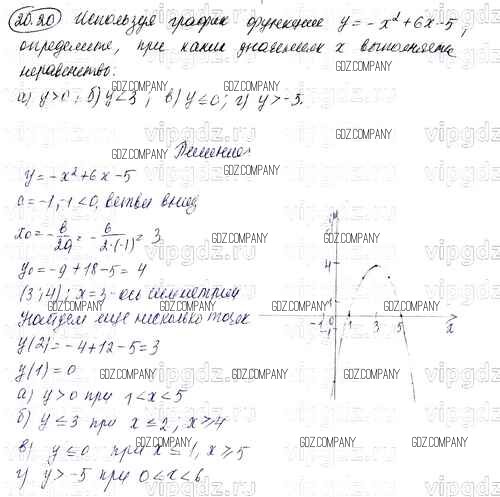 20.20 Используя график функции y = -x² + 6x - 5,
определите, при каких значениях x выполняется
неравенство:
а) y > 0; б) y ≤ 3; в) y ≤ 0; г) y > -5.
Решение
y = -x² + 6x - 5
a = -1, -1 < 0, ветви вниз
x₀ = -b/2a = -6/2·(-1) = 3
y₀ = -9 + 18 - 5 = 4
(3; 4); x = 3 - ось симметрии
Найдем еще несколько точек
y(2) = -4 + 12 - 5 = 3
y(1) = 0
а) y > 0 при 1 < x < 5
б) y ≤ 3 при x ≤ 2, x ≥ 4
в) y ≤ 0 при x ≤ 1, x ≥ 5
г) y > -5 при 0 < x < 6
y
4
1
-1 0 1 3 5 x
-1
GDZ.COMPANY
vipgdz.ru